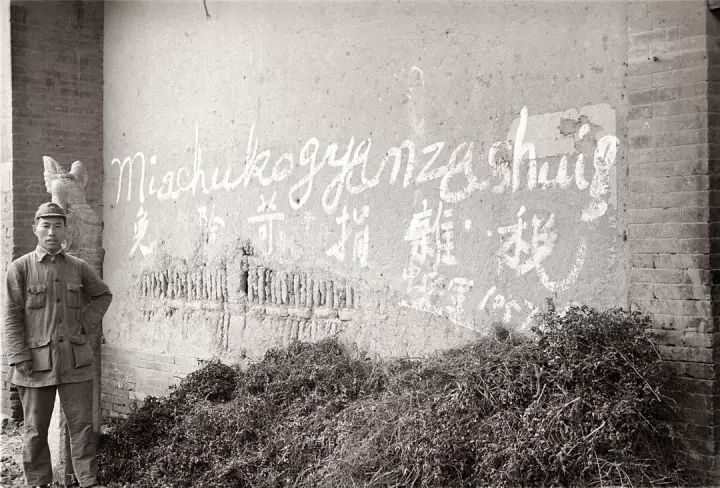 Miachukogyanzashuig
免除苛捐雜税